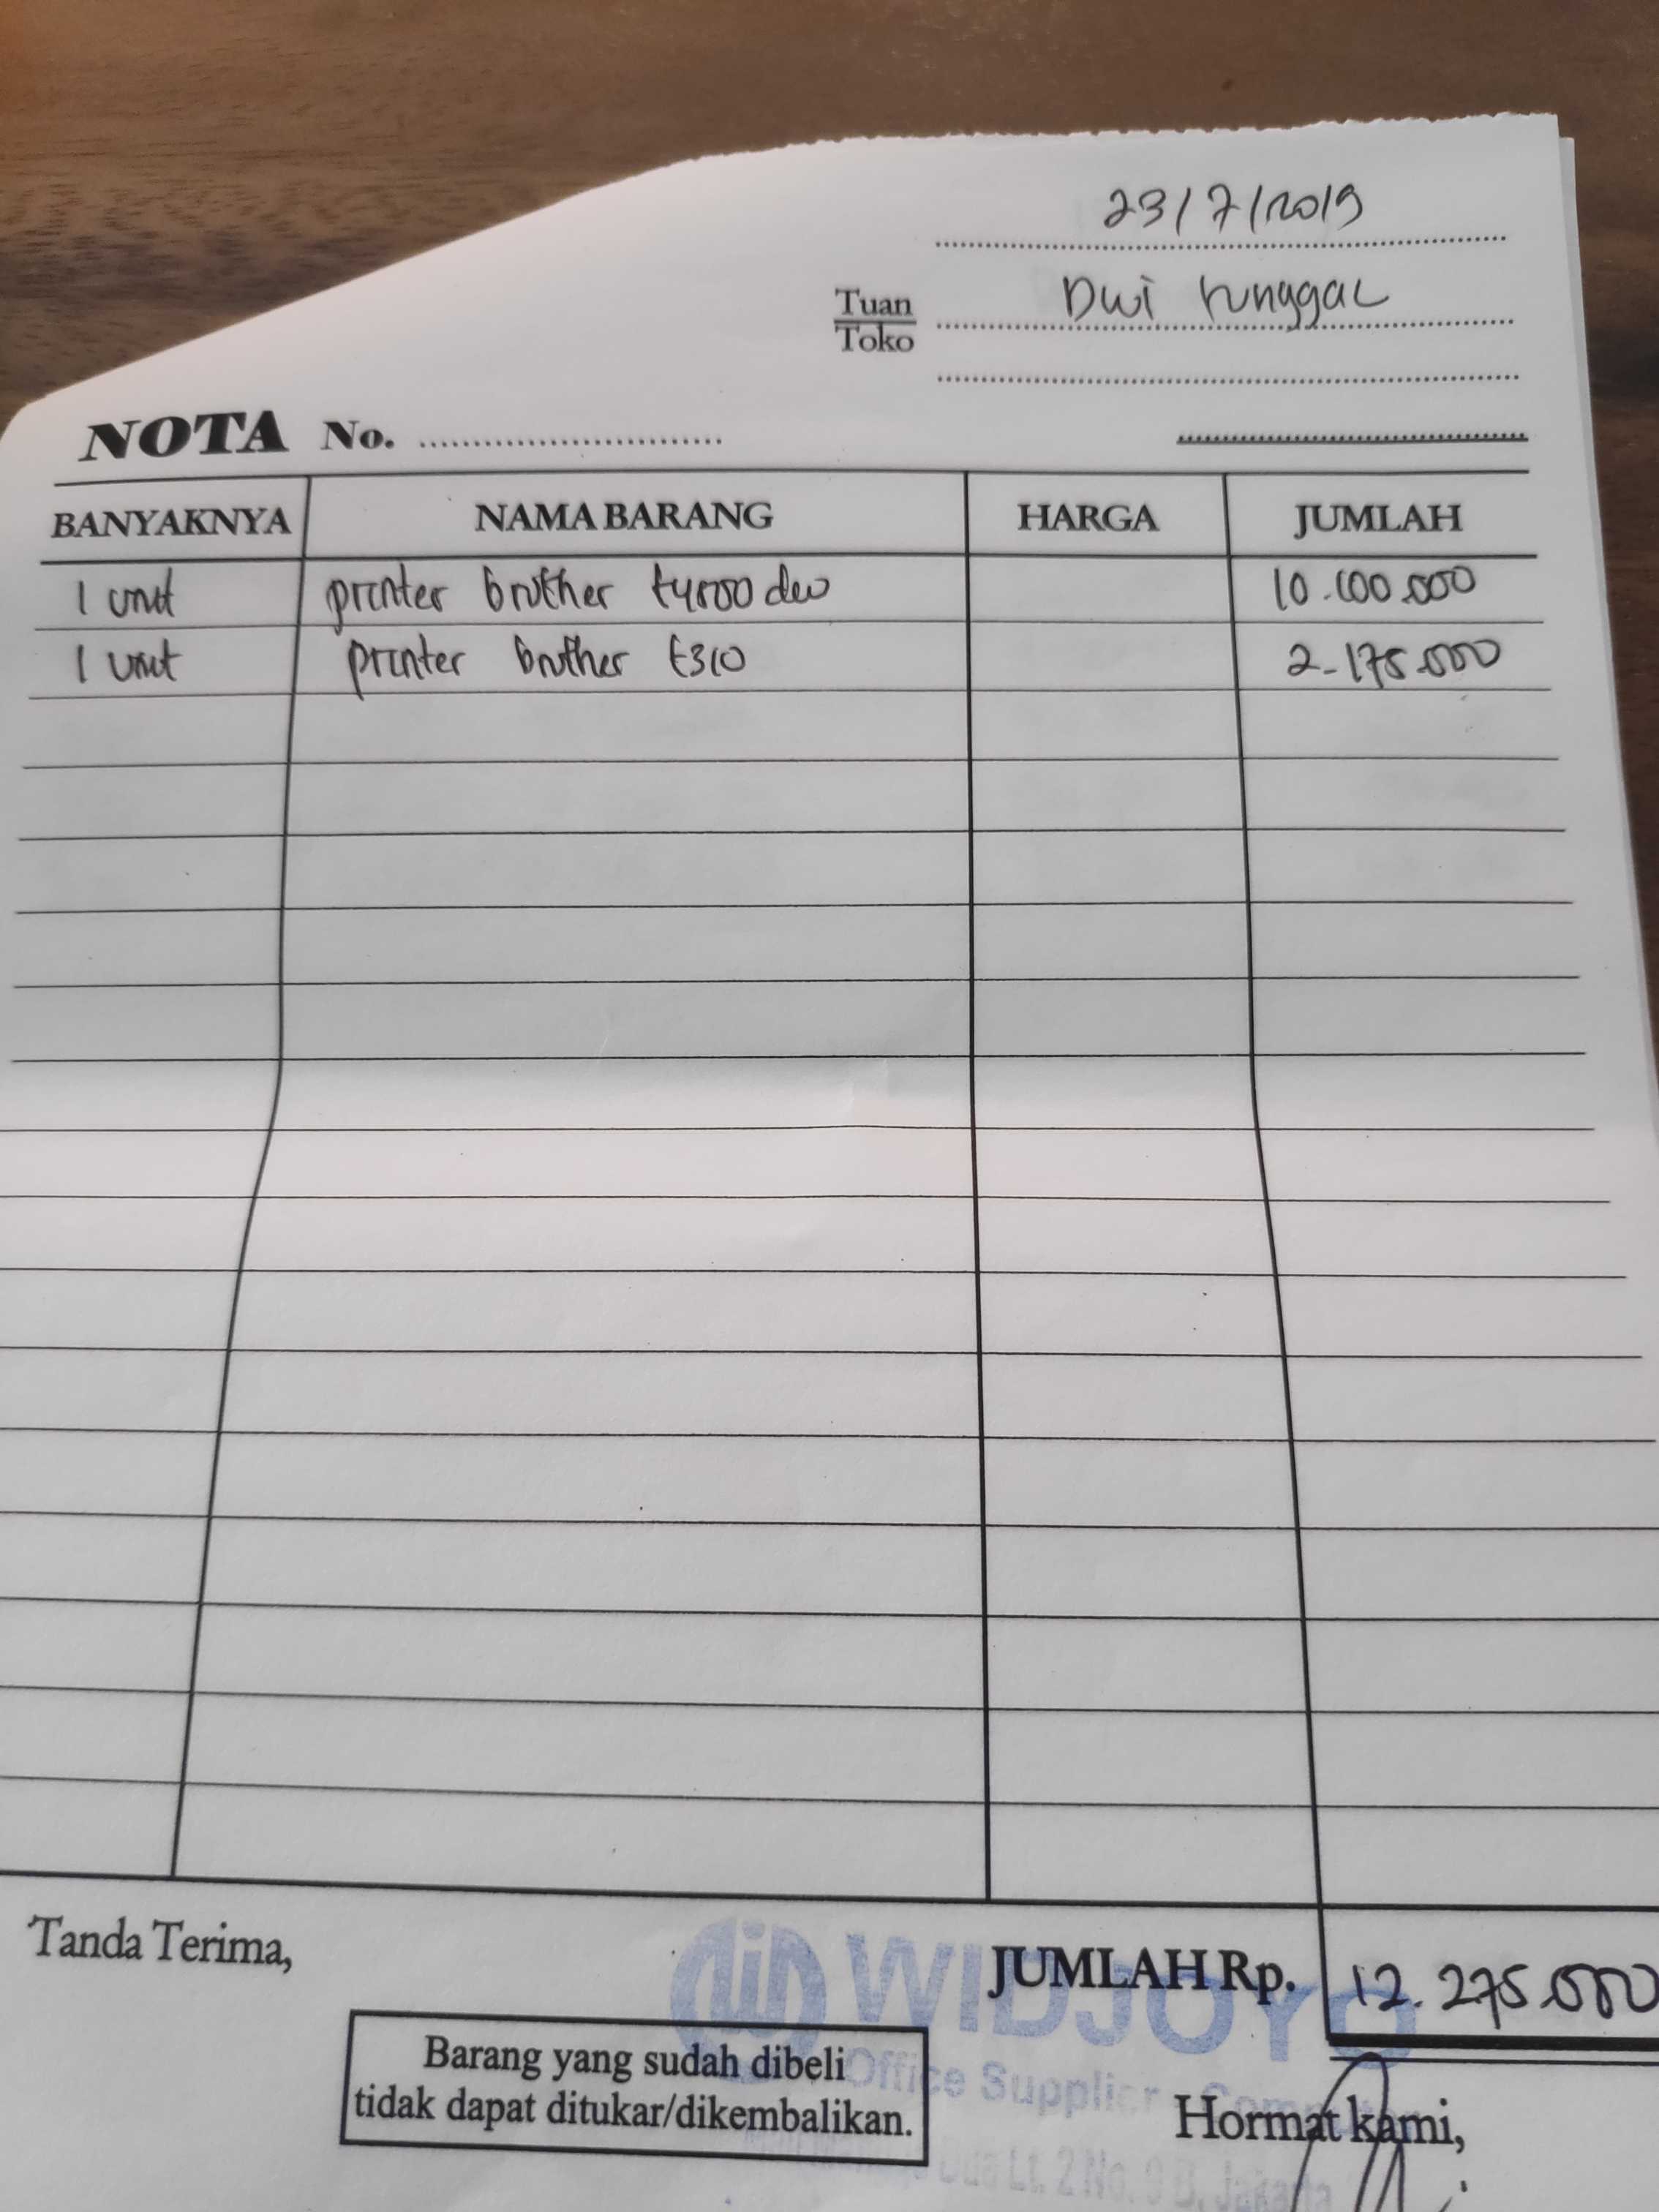 23/7/2019
Tuan
Toko
Dwi tunggal
NOTA No.
BANYAKNYA NAMA BARANG HARGA JUMLAH
1 unit printer brother t4500 dw 10.100.000
1 unit printer brother t310 2.175.000
Tanda Terima,
JUMLAH Rp. 12.275.000
WIDJOYO
Office Supplier - Computer
Barang yang sudah dibeli
tidak dapat ditukar/dikembalikan.
Hormat kami,
Dua Lt. 2 No. 9 B, Jakarta